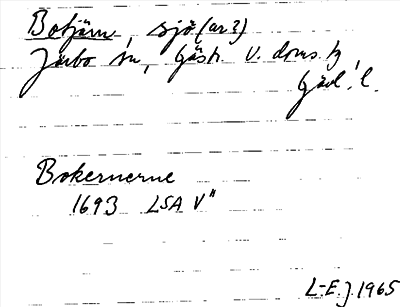 Botjärn, sjö (ar?)
Järbo sn, Gästr. V. doms.
Gävl. l.
Bokernerne
1693 LSA V"
L-E. J. 1965